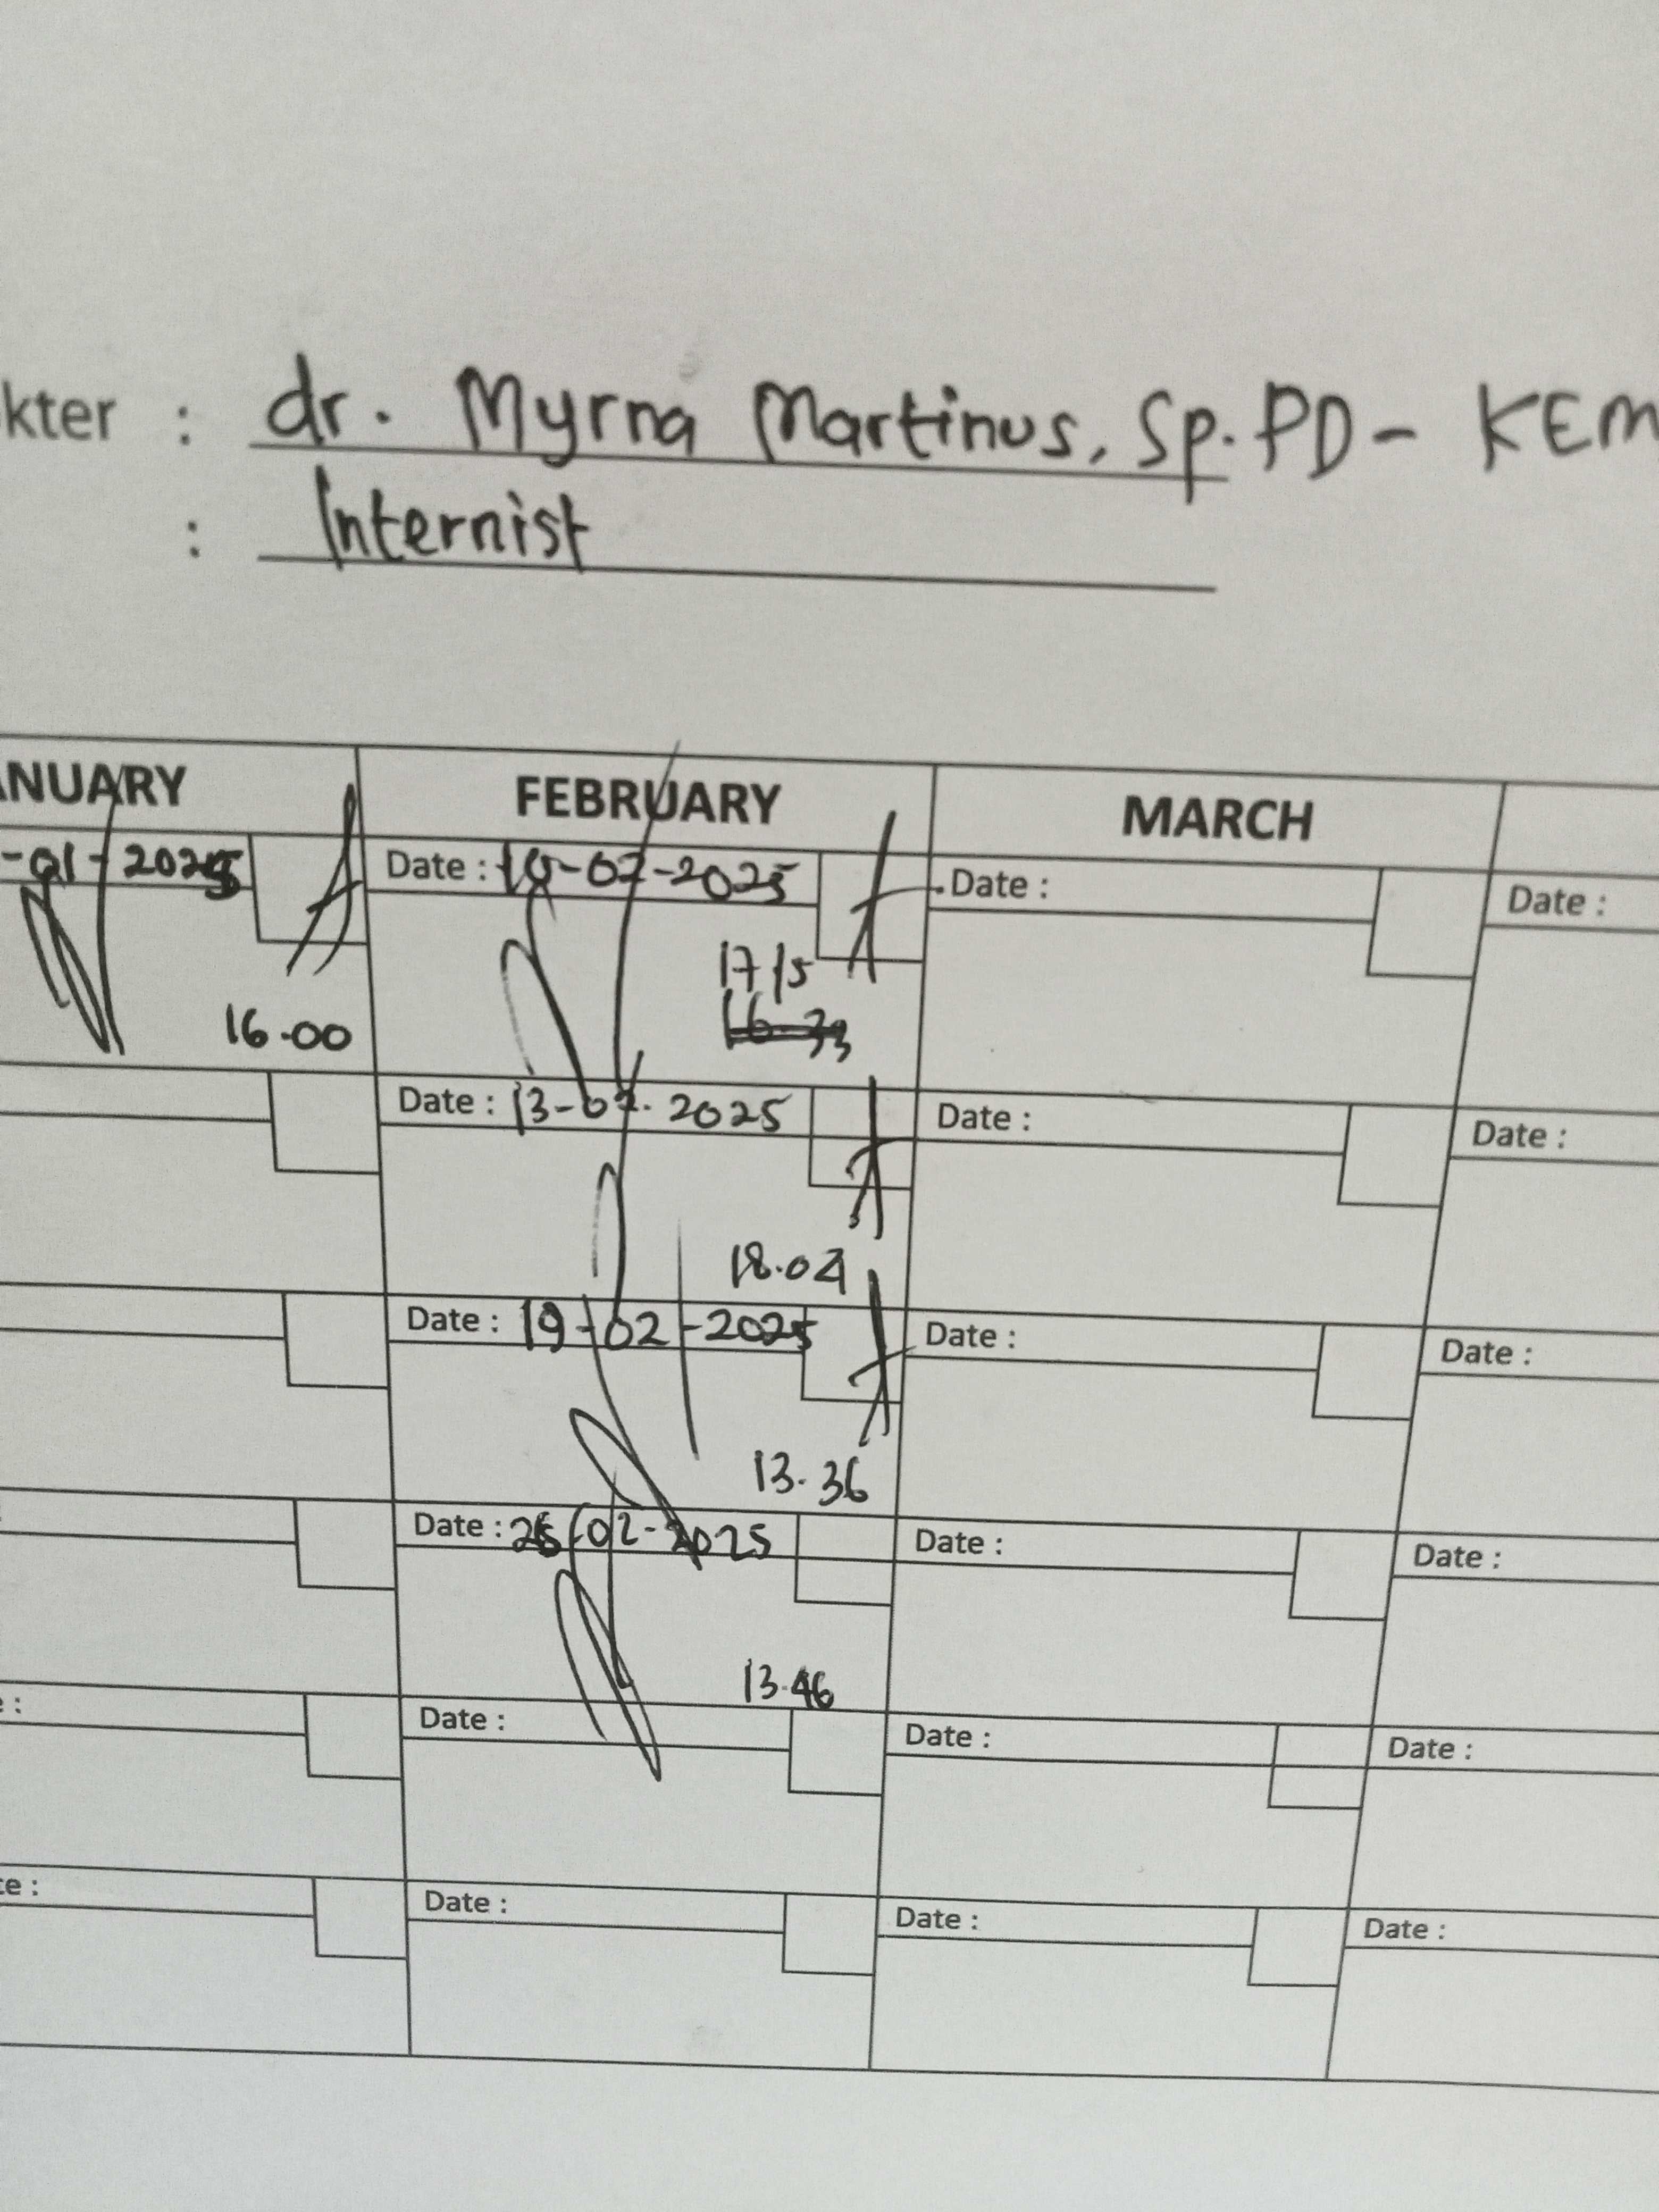 kter : dr. Myrna Martinus, Sp.PD - KEM
: Internist
ANUARY FEBRUARY MARCH
-01-2025 Date : 10-02-2025 Date : Date :
17 15
16.00 16.33
Date : 13-02-2025 Date : Date :
18.04
Date : 19-02-2025 Date : Date :
13.36
Date : -02-2025 Date : Date :
13.46
e : Date : Date : Date :
te : Date : Date : Date :